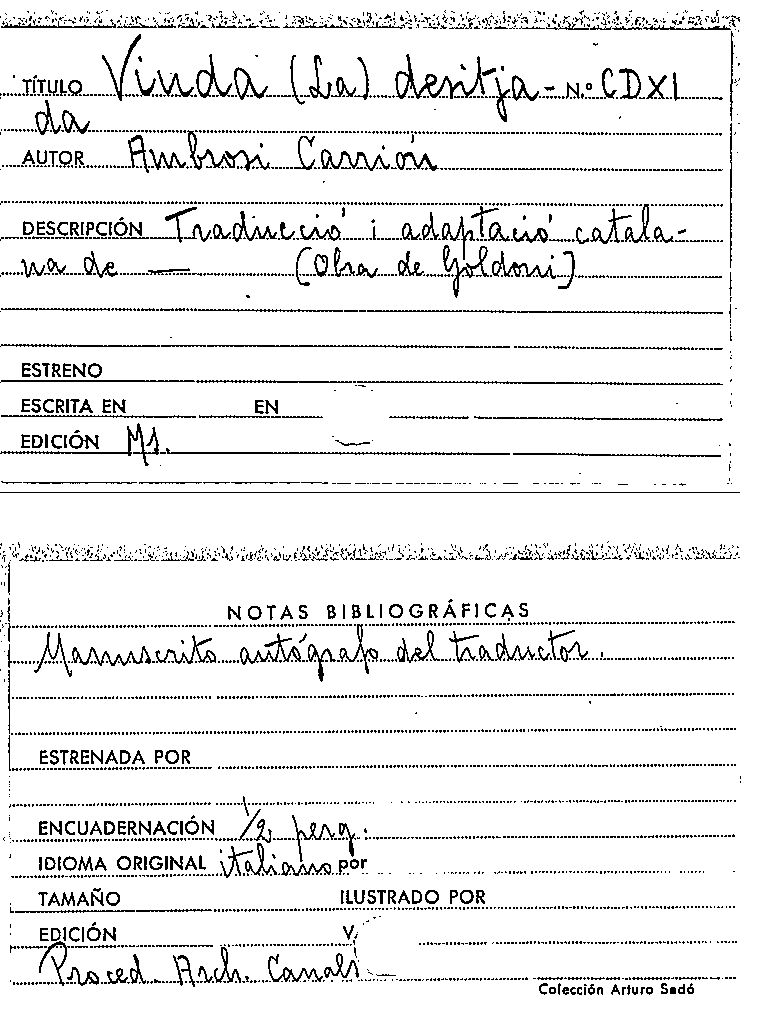 TÍTULO Viuda (La) desitja- N.º CDXI
da
AUTOR Ambrosi Carrión
DESCRIPCIÓN Traducció i adaptació catala-
na de — (Obra de Goldoni)
ESTRENO
ESCRITA EN EN
EDICIÓN Ms.
NOTAS BIBLIOGRÁFICAS
Manuscrito autógrafo del traductor.
ESTRENADA POR
ENCUADERNACIÓN 1/2 perg.
IDIOMA ORIGINAL italiano por
TAMAÑO ILUSTRADO POR
EDICIÓN V.
Proced. Arch. Canals
Colección Arturo Sedó